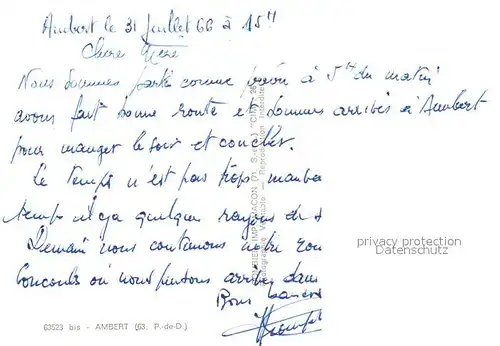 Ambert le 31 Juillet 66 à 15 H
Chère Mémé
Nous sommes parti comme prévu à 5H du matin
avons fait bonne route et sommes arrivés à Ambert
pour manger le soir et coucher.
Le temps n'est pas trop mauvais
temps il y a quelques rayons de
Demain nous continuons notre rou
où nous pensons arriver dans
Bons baisers
privacy protection
Datenschutz
63523 bis - AMBERT (63. P.-de-D.)